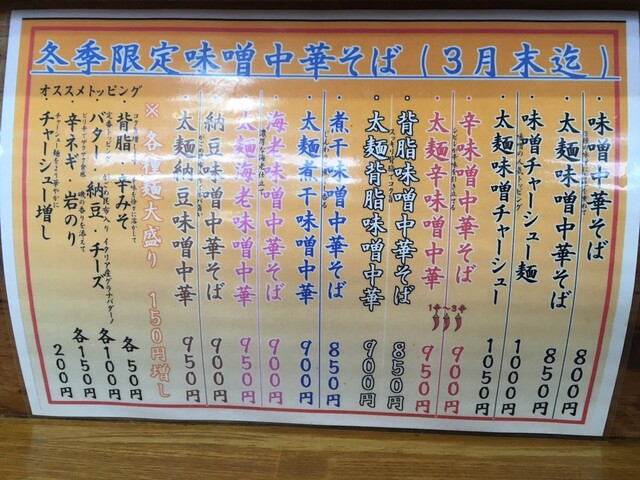 冬季限定味噌中華そば(3月末迄)
・味噌中華そば 800円
・太麺味噌中華そば 850円
・味噌チャーシュー麺 1000円
・太麺味噌チャーシュー 1050円
・辛味噌中華そば 900円
・太麺辛味噌中華 950円
1辛~3辛
・背脂味噌中華そば 850円
・太麺背脂味噌中華 900円
・煮干味噌中華そば 850円
・太麺煮干味噌中華 900円
・海老味噌中華そば 900円
・太麺海老味噌中華 950円
・納豆味噌中華そば 900円
・太麺納豆味噌中華 950円
※各種麺大盛り 150円増し
オススメトッピング
・背脂・辛みそ 各50円
・バター・納豆・チーズ 各100円
・辛ネギ・岩のり 各150円
・チャーシュー増し 200円